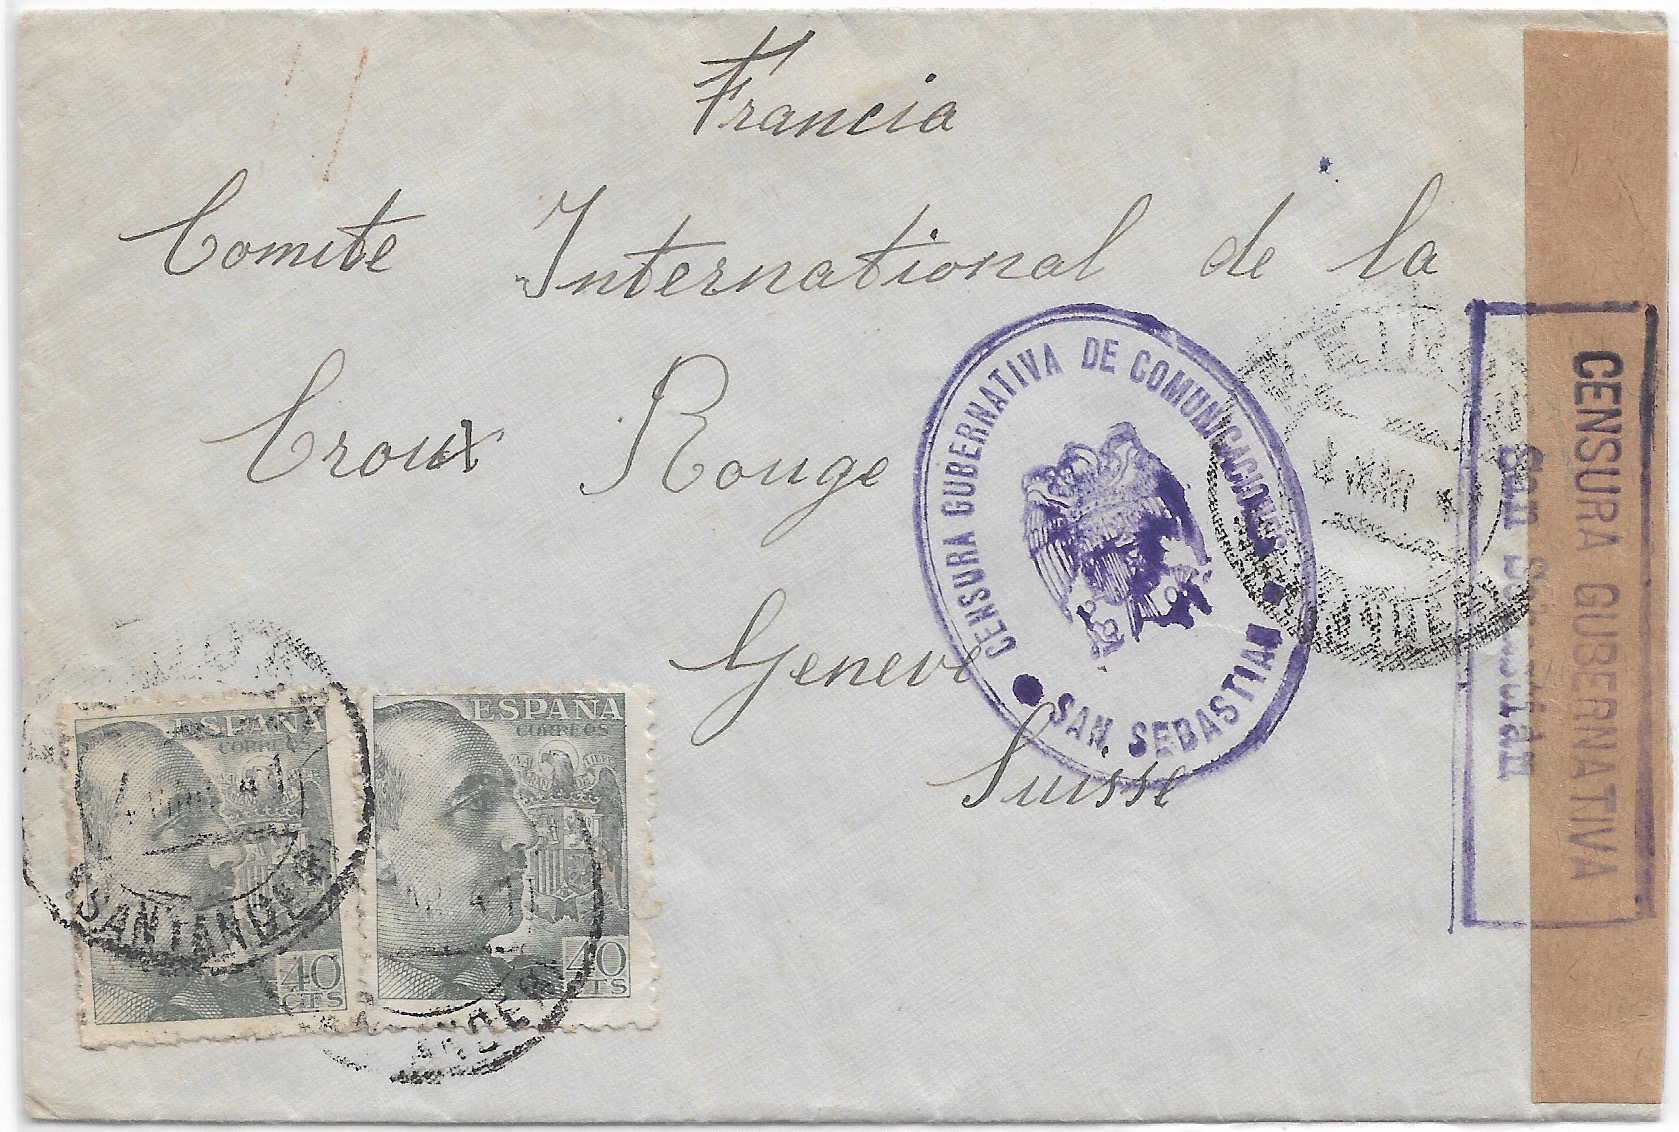 Francia
Comite International de la
Croux Rouge
Geneve
Suisse
CENSURA GUBERNATIVA DE COMUNICACIONES
SAN SEBASTIAN
CENSURA GUBERNATIVA
San Sebastián
ESPAÑA
CORREOS
40
CTS
SANTANDER
ESPAÑA
CORREOS
40
CTS